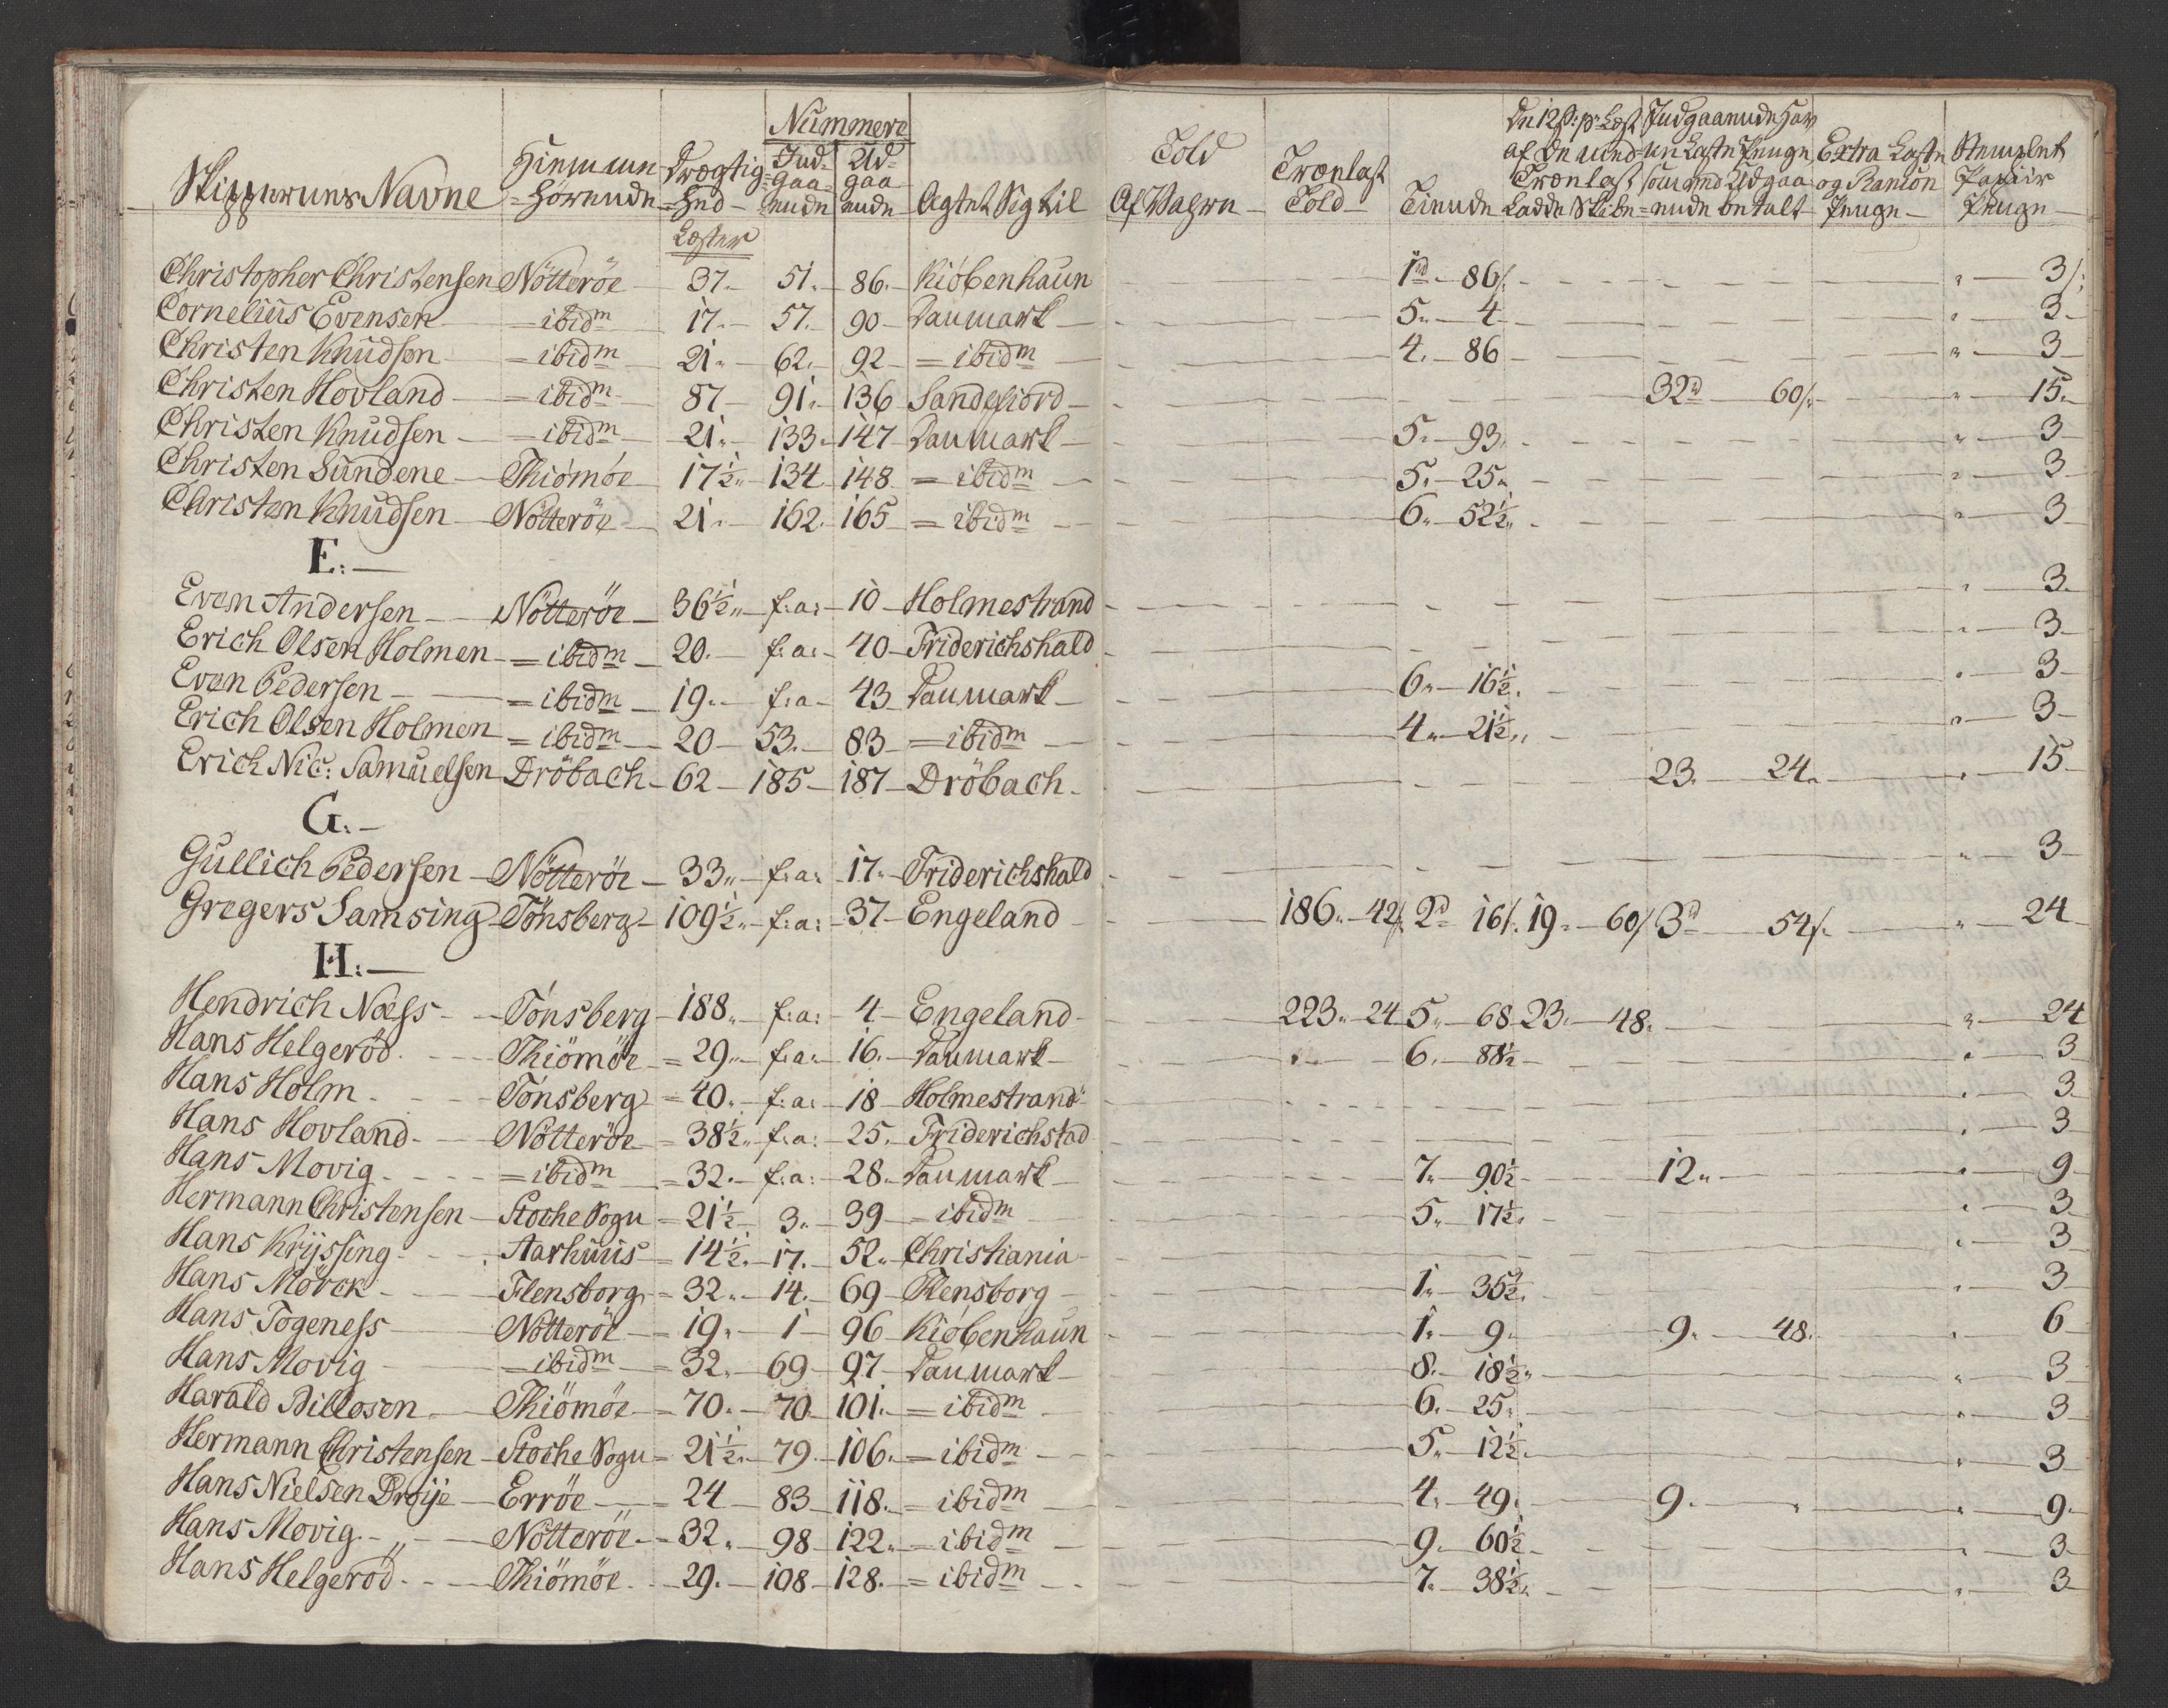 Nummere
Skippernes Navne Hiemme= Drægtig= Ind= Ud= Agtet Sig til Told Trælast Tiende De 12 s: pr Læst Indgaaende Har Extra Læste Stemplet
=Hørende =hed gaa= gaa Af Vahren Told af de med en Læste Penge, og Ranson Papiir
ende ende Trælast som med Udgaa Penge Penge
Læster Ladde Skibe =ende betalt
Christopher Christensen Nötteröe 37. 51. 86. Kiöbenhaun 1rd 86s. " 3s:
Cornelius Evensen =ibidm 17. 57. 90 Danmark 5. 4 " 3
Christen Knudsen =ibidm 21. 62. 92 =ibidm 4. 86 " 3
Christen Hovland =ibidm 87 91. 136 Sandefiord 32rd 60s. " 15.
Christen Knudsen =ibidm 21. 133. 147 Danmark 5. 93. " 3
Christen Sundene Thiömöe 17½. 134. 148 =ibidm 5. 25. " 3
Christen Knudsen Nötteröe 21. 162. 165 =ibidm 6. 52½. " 3
E:
Even Andersen Nötteröe 36½. f:a: 10 Holmestrand " 3.
Erich Olsen Holmen =ibidm 20. f:a: 40 Friderichshald " 3
Even Pedersen =ibidm 19. f:a 43 Danmark 6. 16½. " 3
Erich Olsen Holmen =ibidm 20 53. 83 =ibidm 4. 21½. " 3
Erich Nic: Samuelsen Dröbach 62 185 187 Dröbach 23. 24. " 15
G:
Gullich Pedersen Nötteröe 33. f:a: 17. Friderichshald " 3
Gregers Samsing Tönsberg 109½. f:a: 37 Engeland 186. 42s. 2rd 16s. 19. 60s 3rd 54s. " 24
H:
Hendrich Næss Tönsberg 188. f:a: 4 Engeland 223. 24 5. 68 23. 48. " 24
Hans Helgeröd Thiömöe 29. f:a: 16. Danmark 6. 88½ " 3
Hans Holm Tönsberg 40. f:a: 18 Holmestrand " 3.
Hans Hovland Nötteröe 38½. f:a: 25. Friderichstad " 3
Hans Movig =ibidm 32. f:a: 28. Danmark 7. 90½ 12. " 9
Hermann Christensen Stoche Sogn 21½ 3. 39 =ibidm 5. 17½. " 3
Hans Krijssing Aarhuus 14½. 17. 52. Christiania " 3
Hans Mörck Flensborg 32. 14. 69 Flensborg 1. 35½. " 3
Hans Togeness Nötteröe 19. 1 96 Kiöbenhaun 1. 9. 9. 48. " 6
Hans Movig =ibidm 32. 69 97 Danmark 8. 18½. " 3
Harald Billosen Thiömöe 70. 70. 101. =ibidm 6. 25. " 3
Hermann Christensen Stoche Sogn 21½. 79. 106. =ibidm 5. 12½. " 3
Hans Nielsen Dröije Erröe 24 83 118. =ibidm 4. 49. 9. " " 9.
Hans Movig „ Nötteröe 32. 98 122. =ibidm 9. 60½ " 3
Hans Helgeröd Thiömöe 29. 108 128. =ibidm 7. 38½. " 3